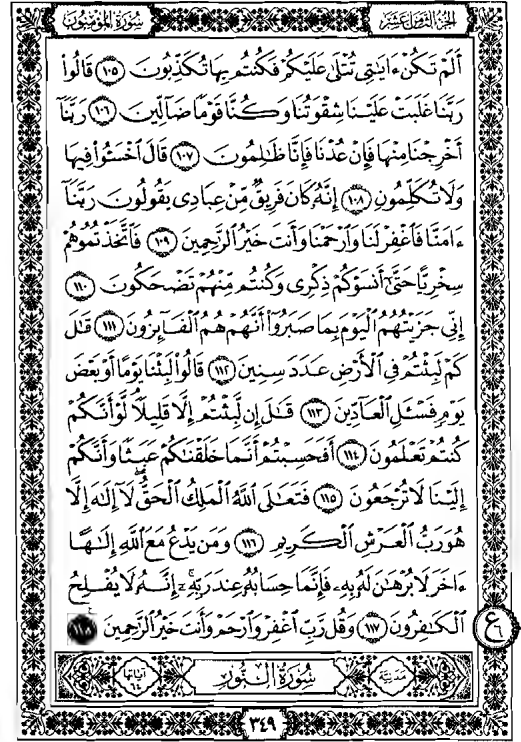 الجزء الثامن عشر
سورة المؤمنون
أَلَمْ تَكُنْ ءَايَٰتِى تُتْلَىٰ عَلَيْكُمْ فَكُنتُم بِهَا تُكَذِّبُونَ ١٠٥ قَالُوا۟
رَبَّنَا غَلَبَتْ عَلَيْنَا شِقْوَتُنَا وَكُنَّا قَوْمًا ضَآلِّينَ ١٠٦ رَبَّنَآ
أَخْرِجْنَا مِنْهَا فَإِنْ عُدْنَا فَإِنَّا ظَٰلِمُونَ ١٠٧ قَالَ ٱخْسَـُٔوا۟ فِيهَا
وَلَا تُكَلِّمُونِ ١٠٨ إِنَّهُۥ كَانَ فَرِيقٌ مِّنْ عِبَادِى يَقُولُونَ رَبَّنَآ
ءَامَنَّا فَٱغْفِرْ لَنَا وَٱرْحَمْنَا وَأَنتَ خَيْرُ ٱلرَّٰحِمِينَ ١٠٩ فَٱتَّخَذْتُمُوهُمْ
سِخْرِيًّا حَتَّىٰٓ أَنسَوْكُمْ ذِكْرِى وَكُنتُم مِّنْهُمْ تَضْحَكُونَ ١١٠
إِنِّى جَزَيْتُهُمُ ٱلْيَوْمَ بِمَا صَبَرُوٓا۟ أَنَّهُمْ هُمُ ٱلْفَآئِزُونَ ١١١ قَٰلَ
كَمْ لَبِثْتُمْ فِى ٱلْأَرْضِ عَدَدَ سِنِينَ ١١٢ قَالُوا۟ لَبِثْنَا يَوْمًا أَوْ بَعْضَ
يَوْمٍ فَسْـَٔلِ ٱلْعَآدِّينَ ١١٣ قَٰلَ إِن لَّبِثْتُمْ إِلَّا قَلِيلًا لَّوْ أَنَّكُمْ
كُنتُمْ تَعْلَمُونَ ١١٤ أَفَحَسِبْتُمْ أَنَّمَا خَلَقْنَٰكُمْ عَبَثًا وَأَنَّكُمْ
إِلَيْنَا لَا تُرْجَعُونَ ١١٥ فَتَعَٰلَى ٱللَّهُ ٱلْمَلِكُ ٱلْحَقُّ ۖ لَآ إِلَٰهَ إِلَّا
هُوَ رَبُّ ٱلْعَرْشِ ٱلْكَرِيمِ ١١٦ وَمَن يَدْعُ مَعَ ٱللَّهِ إِلَٰهًا
ءَاخَرَ لَا بُرْهَٰنَ لَهُۥ بِهِۦ فَإِنَّمَا حِسَابُهُۥ عِندَ رَبِّهِۦٓ ۚ إِنَّهُۥ لَا يُفْلِحُ
ٱلْكَٰفِرُونَ ١١٧ وَقُل رَّبِّ ٱغْفِرْ وَٱرْحَمْ وَأَنتَ خَيْرُ ٱلرَّٰحِمِينَ ١١٨
ع ٦
مدنية
سورة النور
آياتها ٦٤
٣٤٩